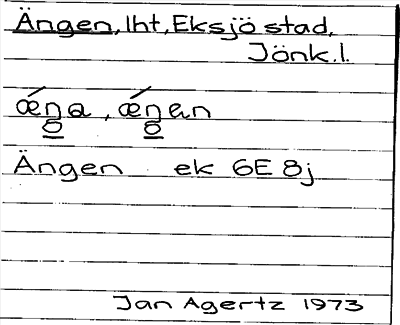 Ängen, lht, Eksjö stad,
Jönk. l.
ǽŋa, ǽŋan
Ängen ek 6E 8j
Jan Agertz 1973